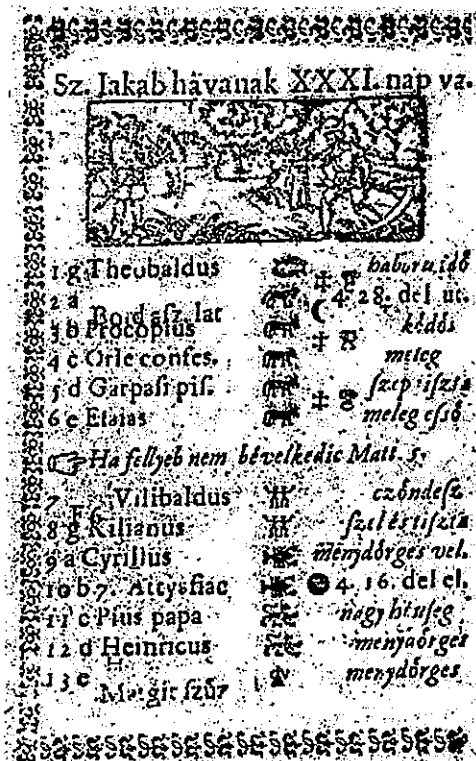 Sz. Jakab hávanak XXXI. nap va.
1 g Theobaldus háboru idő
2 a Bold asz. lat 4. 28. del ut.
3 b Procopius kődös
4 c Orle confes. meleg
5 d Garpasi pis. szep tiszta
6 e Esaias meleg esső
Ha fellyeb nem bévelkedic Matt. 5.
7 Vilibaldus czőndesz
8 g Kilianus szel és tiszta
9 a Cyrillus menydőrges vel.
10 b 7. Attyafiac 4. 16. del el.
11 c Pius papa nagy
12 d Heinricus menydőrges
13 e Margit szűz menydőrges